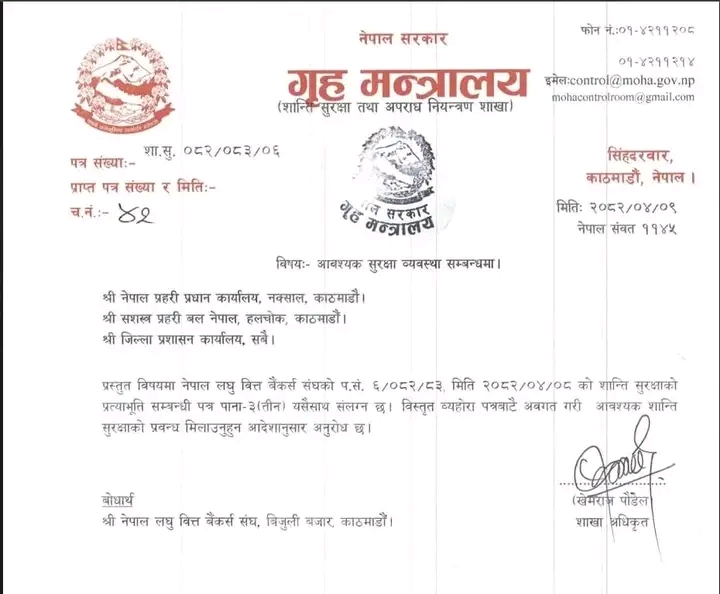 नेपाल सरकार
गृह मन्त्रालय
(शान्ति सुरक्षा तथा अपराध नियन्त्रण शाखा)
फोन नं.:०१-४२११२०८
०१-४२११२१४
इमेल:control@moha.gov.np
mohacontrolroom@gmail.com
पत्र संख्या:- शा.सु. ०८२/०८३/०६
प्राप्त पत्र संख्या र मिति:-
च.नं.:- ४२
नेपाल सरकार
गृह मन्त्रालय
सिंहदरवार,
काठमाडौं, नेपाल ।
मिति: २०८२/०४/०९
नेपाल संवत ११४५
विषय:- आवश्यक सुरक्षा व्यवस्था सम्बन्धमा।
श्री नेपाल प्रहरी प्रधान कार्यालय, नक्साल, काठमाडौं।
श्री सशस्त्र प्रहरी बल नेपाल, हलचोक, काठमाडौं।
श्री जिल्ला प्रशासन कार्यालय, सबै।
प्रस्तुत विषयमा नेपाल लघु वित्त बैंकर्स संघको प.सं. ६/०८२/८३, मिति २०८२/०४/०८ को शान्ति सुरक्षाको
प्रत्याभूति सम्बन्धी पत्र पाना-३(तीन) यसैसाथ संलग्न छ। विस्तृत व्यहोरा पत्रबाटै अवगत गरी आवश्यक शान्ति
सुरक्षाको प्रवन्ध मिलाउनुहुन आदेशानुसार अनुरोध छ।
(खेमराज पौडेल)
शाखा अधिकृत
बोधार्थ
श्री नेपाल लघु वित्त बैंकर्स संघ, बिजुली बजार, काठमाडौं।